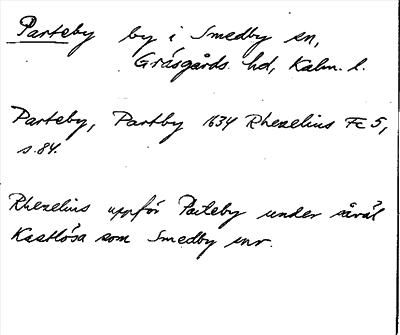 Parteby by i Smedby sn,
Gräsgårds hd, Kalm. l.
Parteby, Partby 1634 Rhezelius Fc 5,
s. 84.
Rhezelius uppför Parteby under såväl
Kastlösa som Smedby snr.